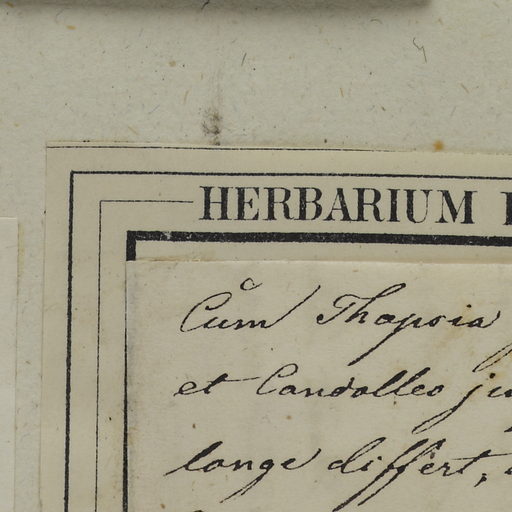 HERBARIUM
Cum Thapsia
et Candolleo
longe differt,